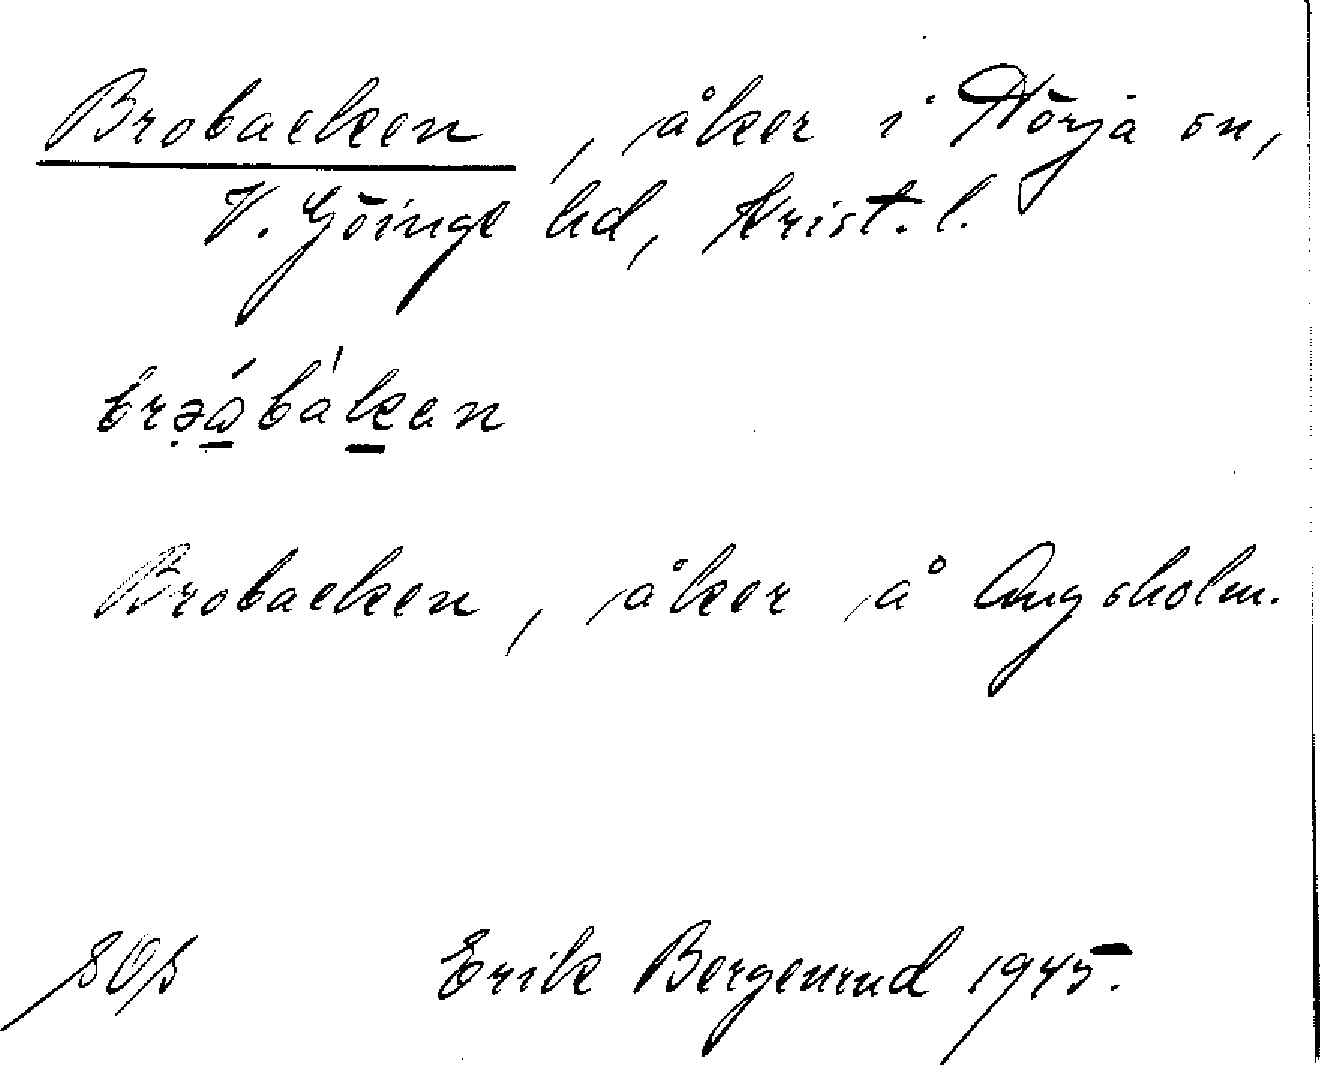 Brobacken, åker i Nörja sn,
V. Göinge hd, Krist. l.
brəόbákan
Brobacken, åker å Ängsholm.
Erik Bergenrud 1945.